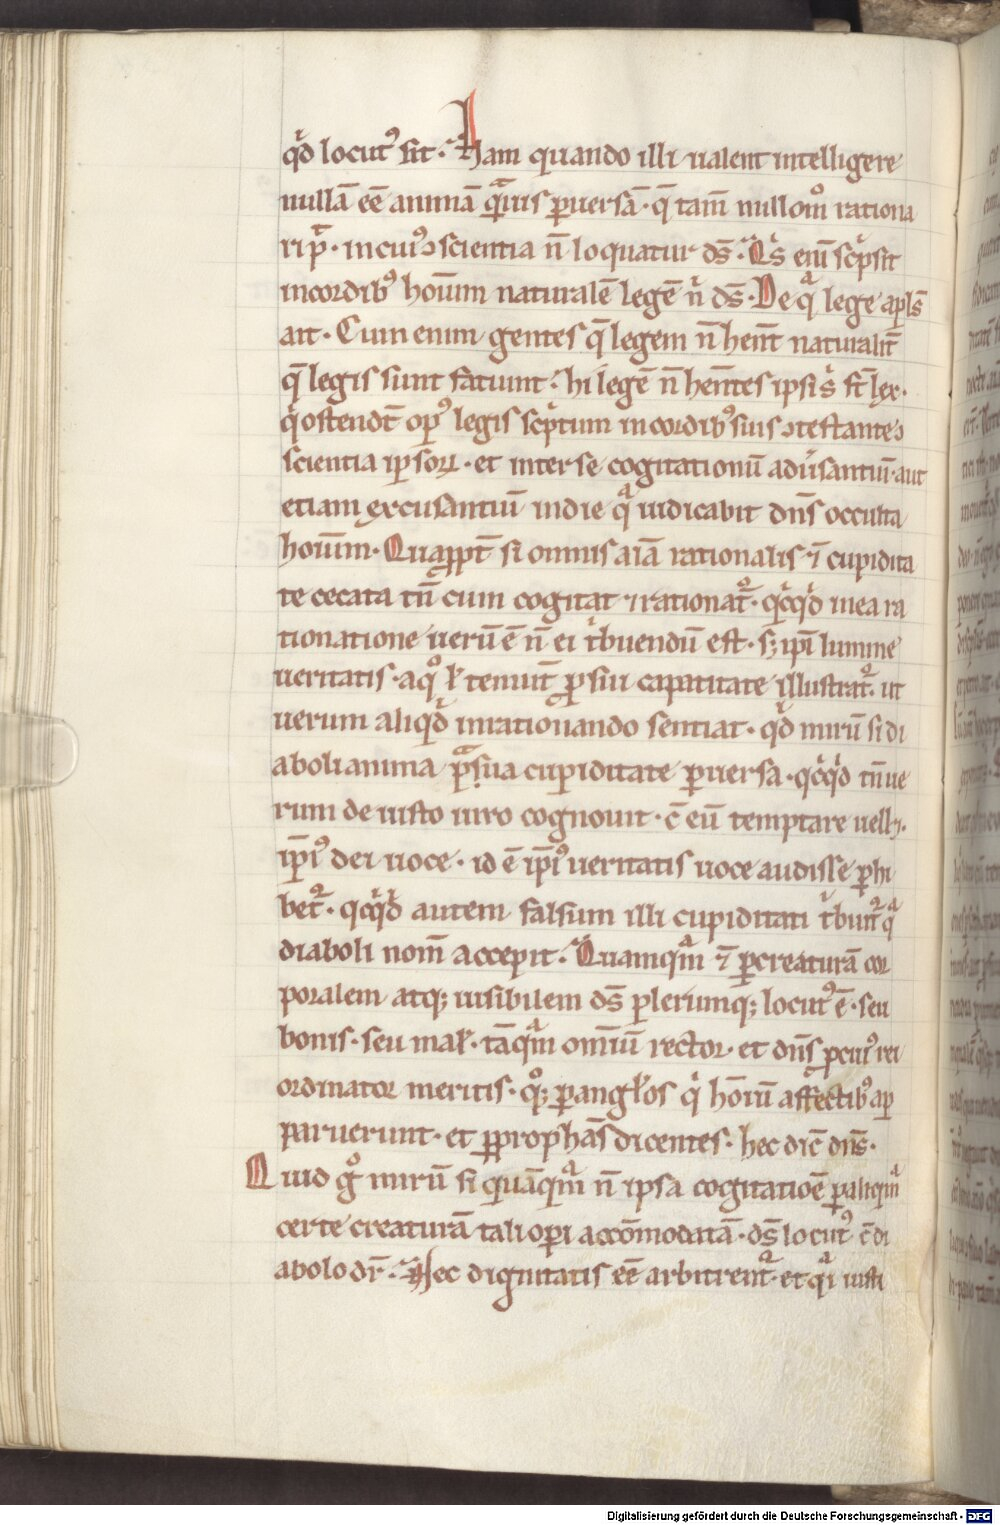 qd locut᷒ sit. Nam quando illi ualent intelligere
nullā eē animā qͣmuis ꝑuersā. q̄ tam̄ nullom̊ rationa
ri pͣ. in cui᷒ ↄscientia n̄ loquatur ds̄. Qͥs eni᷒ scͥpsit
in cordib᷒ hoīum naturalē legē nͥ ds̄. De qͣ lege apls̄
ait. Cum enim gentes q̄ legem n̄ hent̄ naturalit̄
q̄ legis sunt faciunt. hi legē n̄ hentes ipsi sͥ st̄ lex.
qͥ ostendt̄ op᷒ legis scͥptum in cordib᷒ suis ↄtestante ↄ
scientia ipsoꝝ. et inter se cogitationū aduˀsantiū. aut
etiam excusantiū in die qͣ iudicabit dn̄s occulta
hoīum. Quapp̄t si omnis aīa rationalis ⁊̄ cupidita
te cecata tn̄ cum cogitat ⁊ rationat᷑. qͥcqͥd in ea ra
tionatione uerū ē n̄ ei tͥbuendū est. sꝫ ipī lumine
ueritatis. a qͦ ł tenuit̄ ꝑ sui capacitate illustrat᷑. ut
uerum aliqͥd in rationando sentiat. qd mirū si di
aboli anima pͣ sua cupiditate ꝑuersa. qͥcqͥd tn̄ ue
rum de iusto uiro cognouit. c̄ eū temptare uellꝫ.
ipī᷒ dei uoce. id ē ipī᷒ ueritatis uoce audisse ꝑhi
bet᷑. qͥcqͥd autem falsum illi cupiditati tͥbuit᷑ qͣ
diaboli nom̄ accepit. Quamqͣm ⁊̄ ꝑ creaturā cor
poralem atqꝫ uisibilem ds̄ plerumqꝫ locut᷒ ē. seu
bonis. seu mał. tāqͣm omīū rector. et dn̄s ꝑ cui᷒ rei
ordinator meritis. qͦꝫ ꝑ angłos qͥ hoīū affectib᷒ ap
paruerunt. et ꝑ prophās dicentes. hec dic̄ dn̄s.
Quid gͦ mirū si quāqͣm n̄ ipsa cogitatiōe ꝑ aliqͣm
certe creaturā tali opi accōmodatā. ds̄ locut᷒ c̄ di
abolo dr̄. Nec dignitatis eē arbitrent᷑. et qͣi iusti
Digitalisierung gefördert durch die Deutsche Forschungsgemeinschaft - DFG